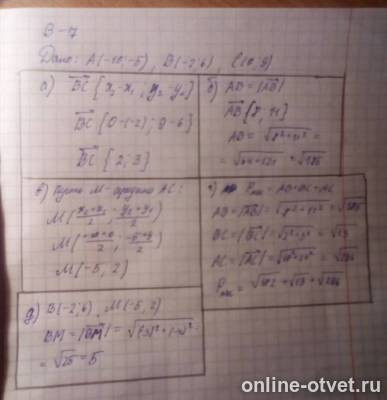 В-7
Дано: A(-10;-5), B(-2;6), C(0;9)
а) BC {x₂-x₁; y₂-y₁}
BC {0-(-2); 9-6}
BC {2; 3}
б) AB = |AB|
AB {8; 11}
AB = √8²+11² =
= √64+121 = √185
в) Пусть M- середина AC:
M(x₂+x₁/2; y₂+y₁/2)
M(-10+0/2; -5+9/2)
M(-5; 2)
г) = AB+BC+AC
AB=|AB|=√8²+11² = √185
BC=|BC|=√2²+3² = √13
AC=|AC|=√10²+14² = √296
д) B(-2;6), M(-5; 2)
BM = |BM| = √(-3)²+(-4)² =
= √25 = 5
online-otvet.ru